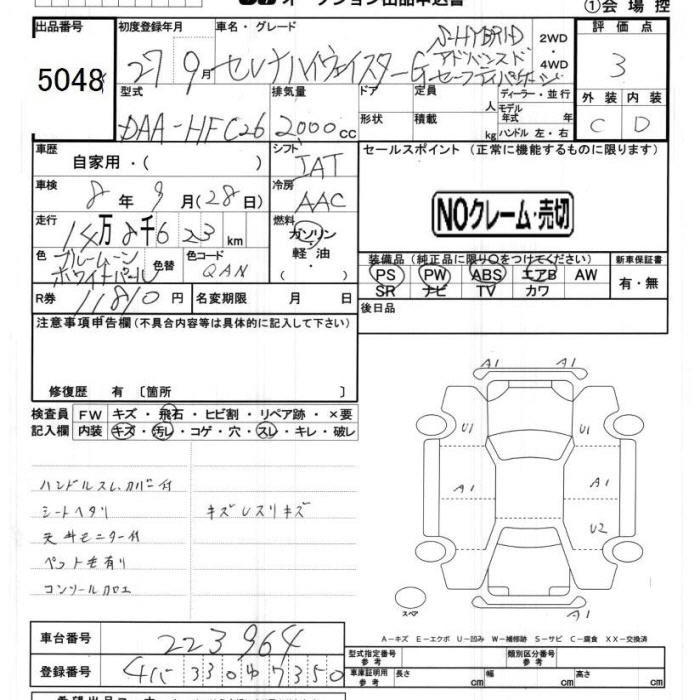 オークション出品申込書
①会場控
出品番号 5048
初度登録年月 27 9月
車名・グレード セレナハイウェイスターG S-HYBRID アドバンスド セーフティパッケージ
2WD・4WD
評価点 3
外装 C 内装 D
型式 DAA-HFC26
排気量 2000cc
ドア 形状
定員 人
積載 kg
ディーラー・並行
モデル年式 年
ハンドル 左・右
車歴 自家用・( )
シフト IAT
車検 8年 9月(28日)
冷房 AAC
走行 14万8千623km
燃料 ガソリン・軽油・( )
色 ブルームーン ホワイトパール 色替
色コード QAN
R券 11810円
名変期限 月 日
セールスポイント (正常に機能するものに限ります)
NOクレーム・売切
装備品 (純正品に限り○をつけてください)
PS PW ABS エアB AW
SR ナビ TV カワ
新車保証書 有・無
後日品
注意事項申告欄 (不具合内容等は具体的に記入して下さい)
修復歴 有 〔箇所 〕
検査員記入欄
FW キズ・飛石・ヒビ割・リペア跡・×要
内装 キズ・汚レ・コゲ・穴・スレ・キレ・破レ
ハンドルスレ.カバー付
シートヘタリ
天井モニター付
ペット毛有り
コンソール加工
キズ Uスリキズ
A1 A1
U1 U1
A1 A1
U2
A1
スペア
A-キズ E-エクボ U-凹み W-補修跡 S-サビ C-腐食 XX-交換済
車台番号 223964
登録番号
型式指定番号 参考
類別区分番号 参考
車庫証明用 参考 長さ cm 幅 cm 高さ cm